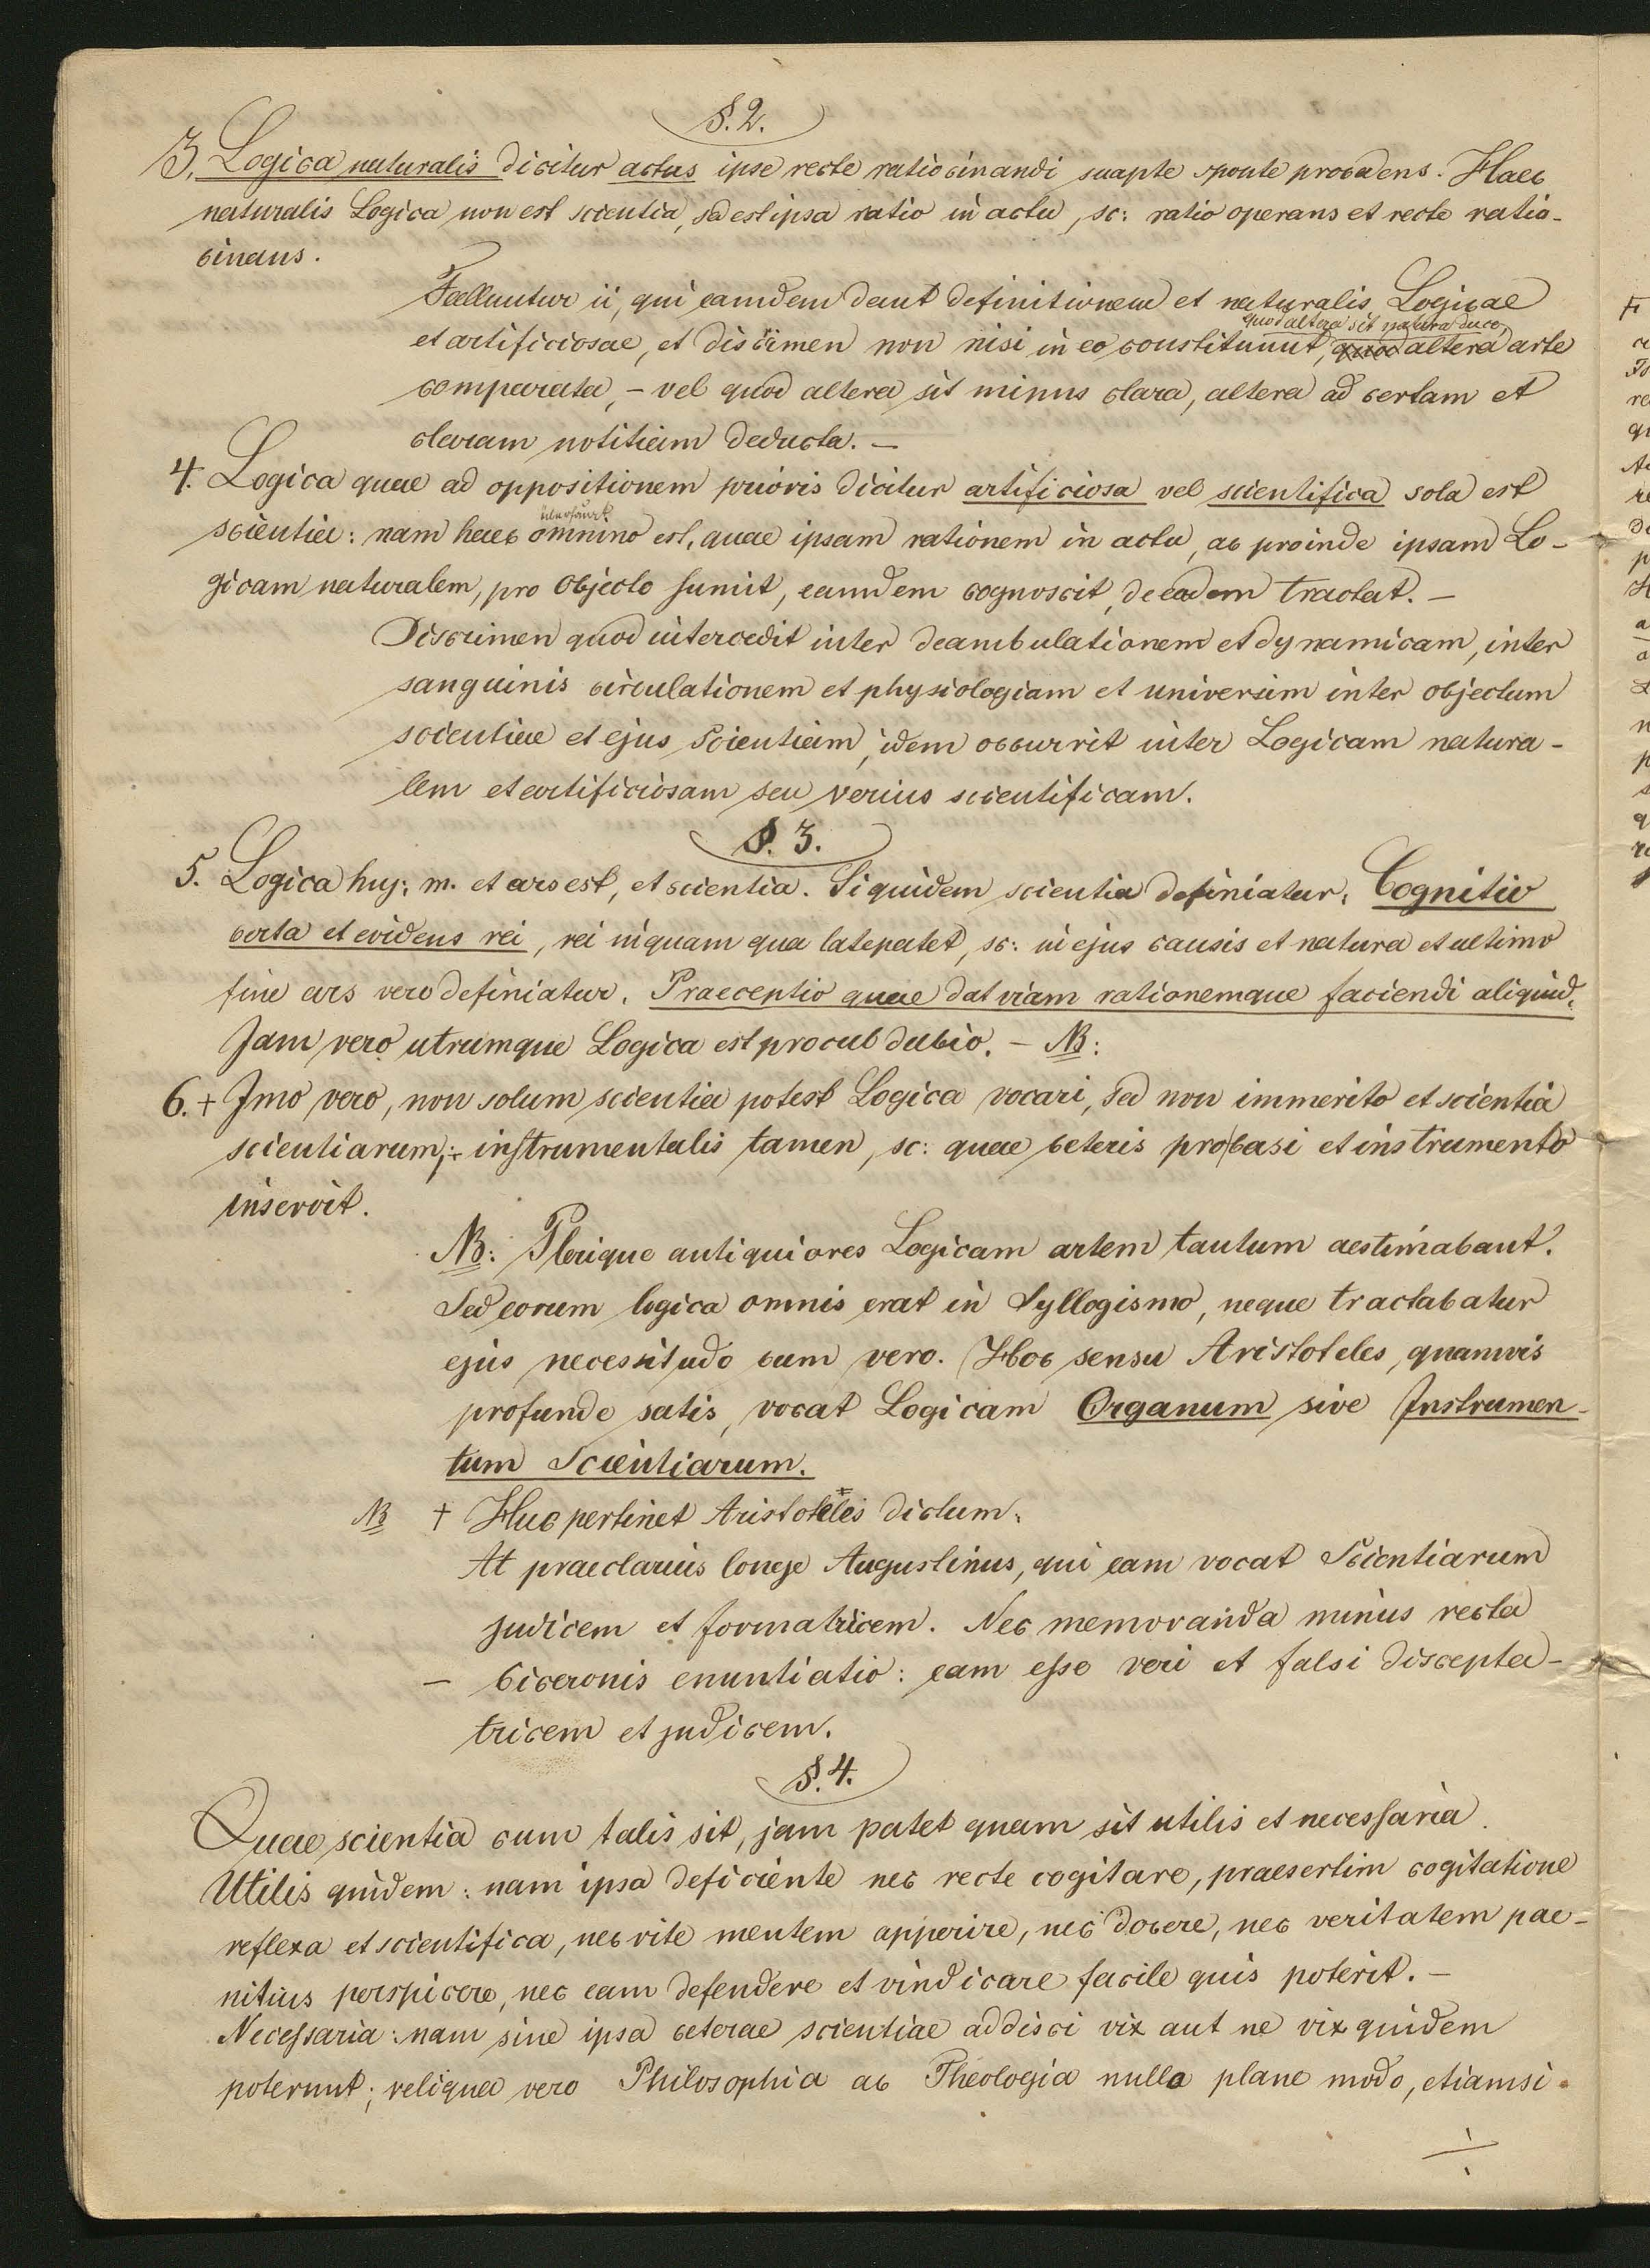 §. 2.
3. Logica naturalis dicitur actus ipse recte ratiocinandi suapte sponte procedens. Haec
naturalis Logica non est scientia, sed est ipsa ratio in actu, sc: ratio operans et recte ratio-
cinans.
Falluntur ii, qui eamdem dant definitionem et naturalis Logicae
quod altera sit natura duce,
et artificiosae, et discrimen non nisi in eo constituunt, quod altera arte
comparata, - vel quod altera sit minus clara, altera ad certam et
claram notitiam deducta. -
4. Logica quae ad oppositionem prioris dicitur artificiosa vel scientifica sola est
überhaupt
scientia: nam haec omnino est, quae ipsam rationem in actu, ac proinde ipsam Lo-
gicam naturalem, pro objecto sumit, eamdem cognoscit, de eadem tractat. -
Discrimen quod intercedit inter deambulationem et dynamicam, inter
sanguinis circulationem et physiologiam et universim inter objectum
scientiae et ejus scientiam, idem occurrit inter Logicam natura-
lem et artificiosam seu verius scientificam.
§. 3.
5. Logica huj: m. et ars est, et scientia. Siquidem scientia definiatur: Cognitio
certa et evidens rei, rei inquam qua late patet, sc: in ejus causis et natura et ultimo
fine ars vero definiatur: Praeceptio quae dat viam rationemque faciendi aliquid.
Jam vero utrumque Logica est procul dubio. - NB:
6. + Jmo vero, non solum scientia potest Logica vocari, sed non immerito et scientia
scientiarum; + instrumentalis tamen, sc: quae ceteris pro basi et instrumento
inservit.
NB: Plerique antiquiores Logicam artem tantum aestimabant.
Sed eorum logica omnis erat in Syllogismo, neque tractabatur
ejus necessitudo cum vero. Hoc sensu Aristoteles, quamvis
profunde satis, vocat Logicam Organum sive Instrumen-
tum Scientiarum.
NB + Huc pertinet Aristotelis dictum:
At praeclarius longe Augustinus, qui eam vocat Scientiarum
judicem et formatricem. Nec memoranda minus recta
- Ciceronis enuntiatio: eam esse veri et falsi discepta-
tricem et judicem.
§. 4.
Quae scientia cum talis sit, jam patet quam sit utilis et necessaria.
Utilis quidem: nam ipsa deficiente nec recte cogitare, praesertim cogitatione
reflexa et scientifica, nec rite mentem apperire, nec docere, nec veritatem pae-
nitius perspicere, nec eam defendere et vindicare facile quis poterit. -
Necessaria: nam sine ipsa ceterae scientiae addisci vix aut ne vix quidem
poterunt; reliqua vero Philosophia ac Theologia nullo plane modo, etiamsi
÷